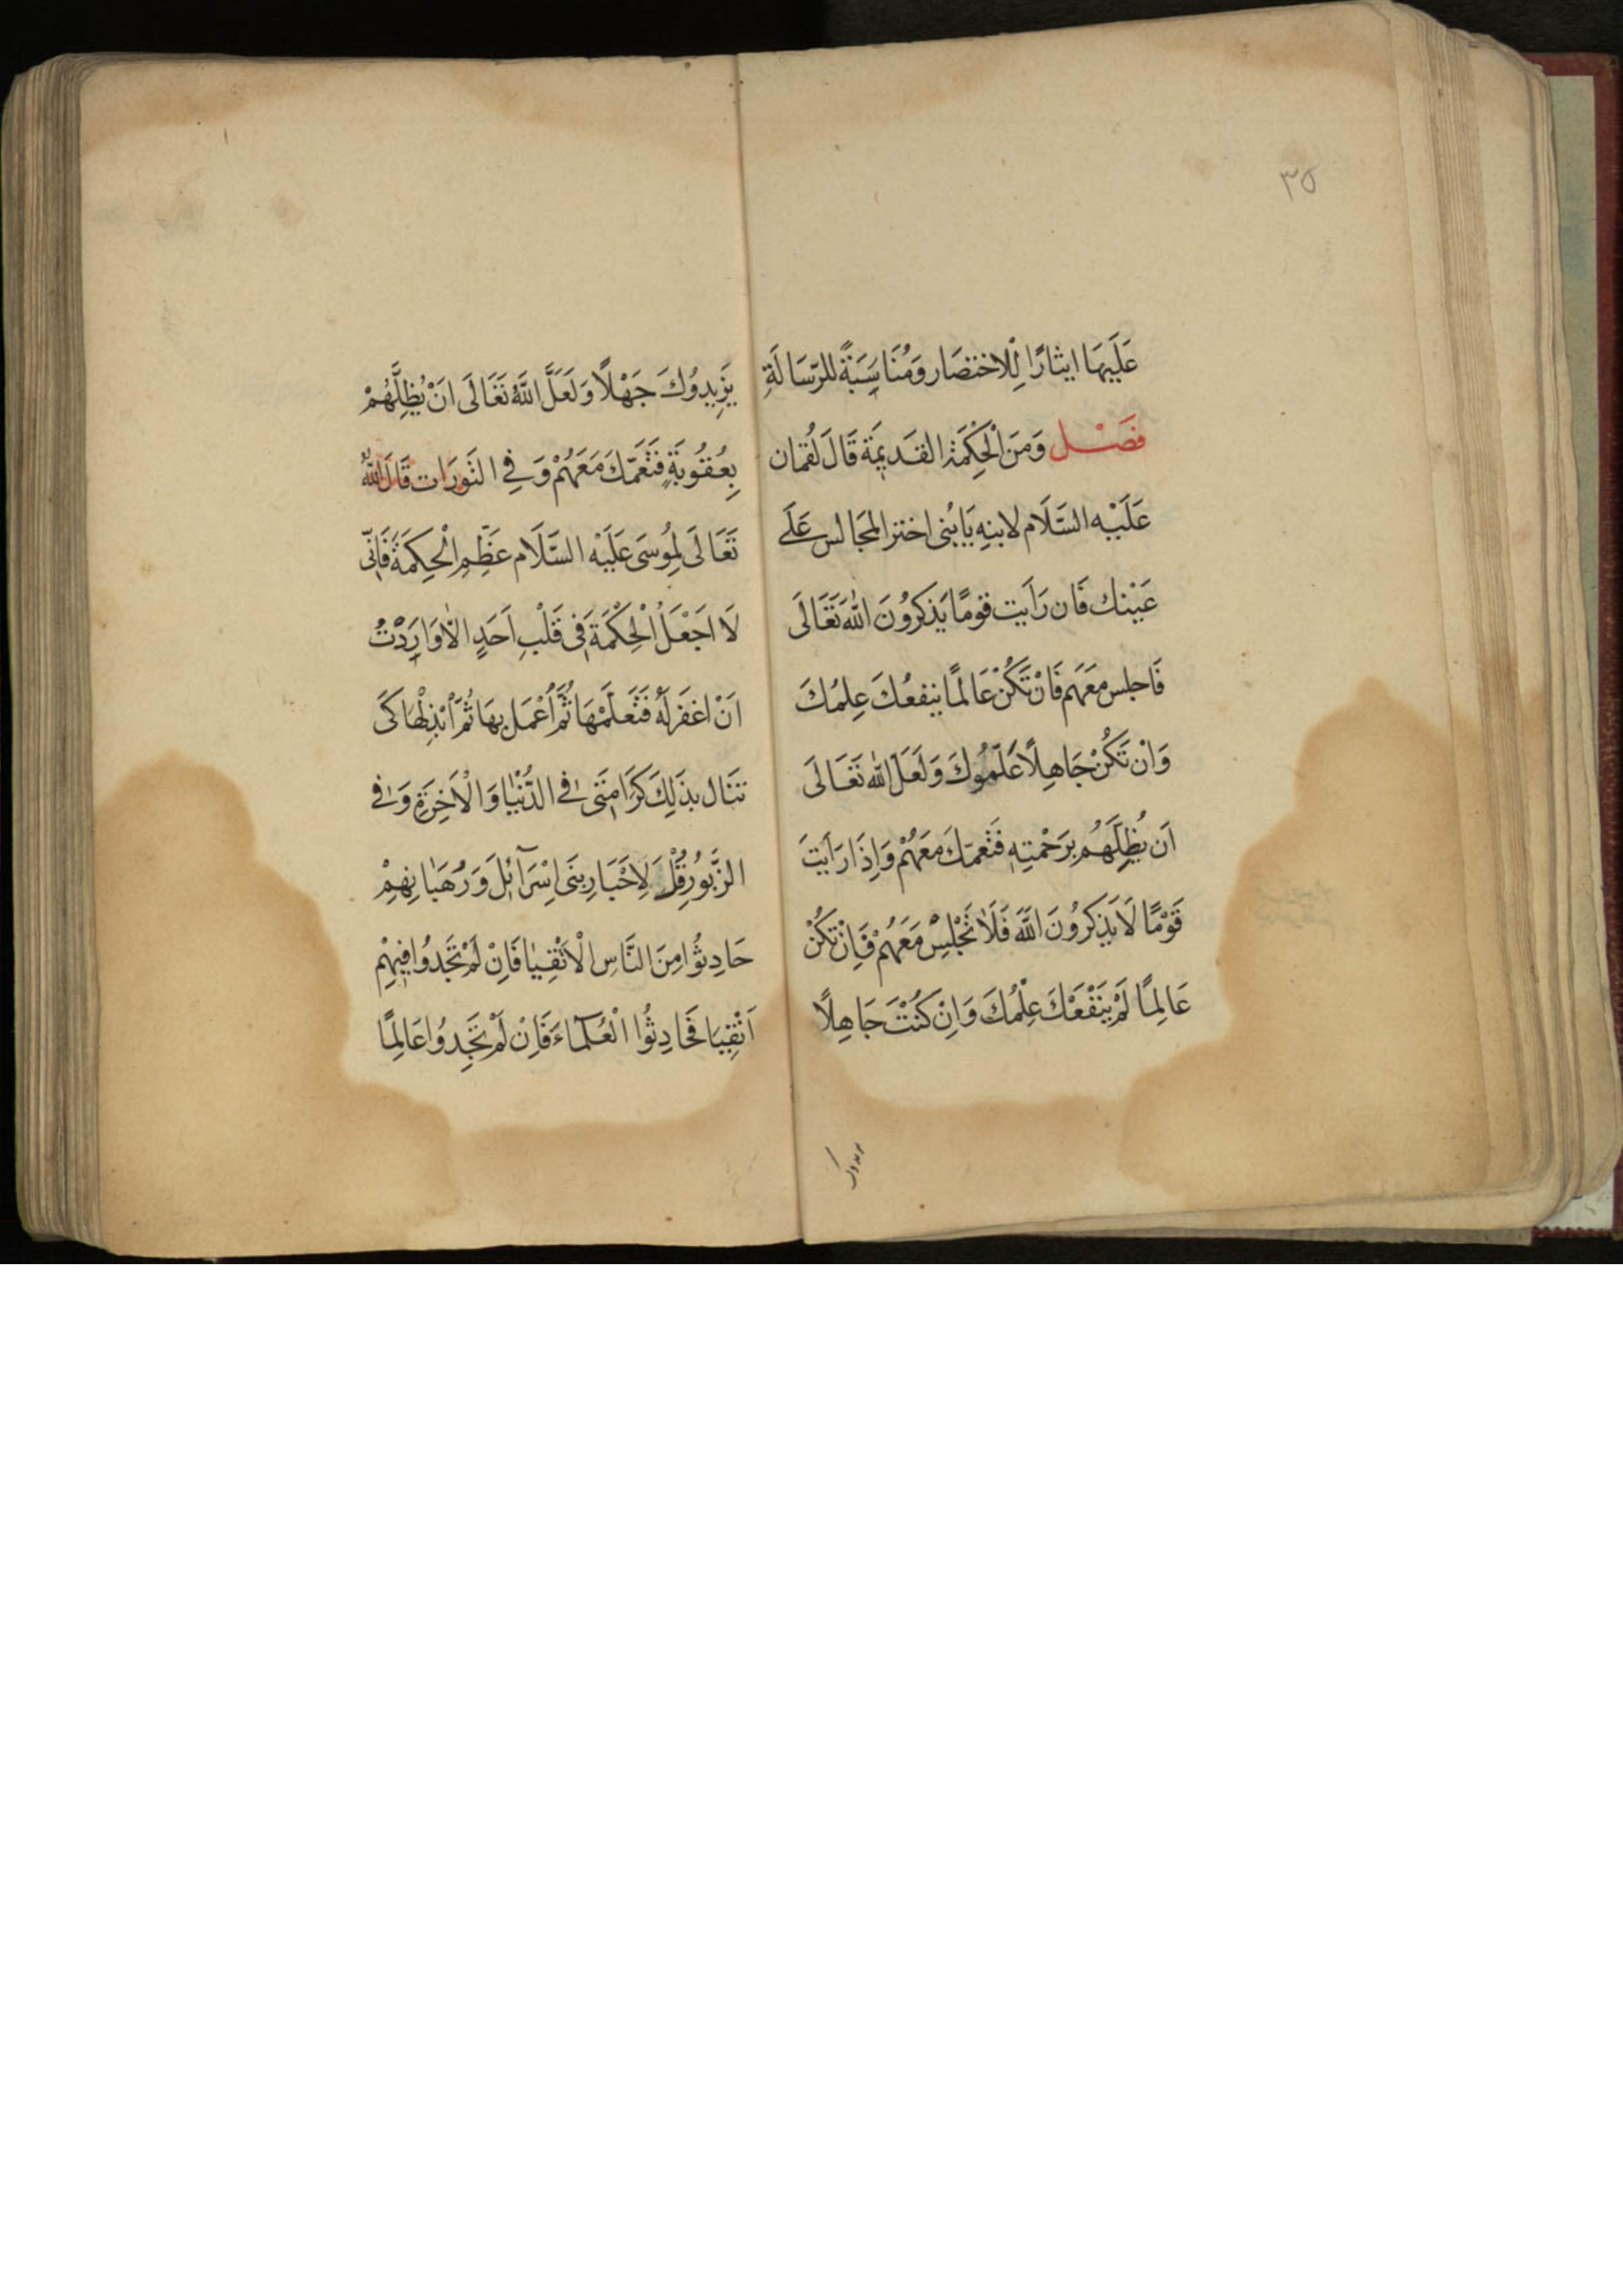 ٣٥
عَلَيْهَا ايثارًا لِلاختصَار وَمُنَاسَبَةً للرّسَالَةِ
فَصْل وَمنَ الْحِكْمَةِ القَديمَة قَالَ لُقمان
عَلَيْه السَّلَام لابنِهِ يَا بُنى اختر المجَالس عَلَى
عَيْنك فَان رَاَيت قومًا يَذكرُونَ اللّٰه تَعَالَى
فَاجلس مَعَهم فَانْ تَكُنْ عَالمًا ينفعُكَ عِلمُكَ
وَانْ تَكُنْ جَاهِلًا عَلّمُوكَ وَلَعَلَ اللّٰه تَعَالَى
اَن يُظِلَّهُم بِرَحْمتِهِ فَتَعمّكَ مَعَهُمْ وَاِذَا رَاَيْتَ
قَوْمًا لَا يَذكرُونَ اللّٰهَ فَلَا تَجْلِسْ مَعَهُمْ فَاِنْ تَكُنْ
عَالِمًا لَمْ يَنْفَعْكَ عِلْمُكَ وَاِنْ كُنْتَ جَاهِلًا
يَزِيدُوكَ جَهْلًا وَلَعَلَّ اللّٰهَ تَعَالَى اَنْ يُظِلَّهُمْ
بِعُقُوبَةٍ فَتَعُمّكَ مَعَهُمْ وَفِي التَورَات قَالَ اللّٰهُ
تَعَالَى لِمُوسَى عَلَيْه السَّلَام عَظِّمِ الْحِكمَةَ فَاِنّى
لَا اَجْعَلُ الْحِكْمَةَ فى قَلْبِ اَحَدٍ اِلّا وَارَدْتُ
اَنْ اغفَرلَهُ فَتَعَلَّمْهَا ثُمَّ اعْمَل بهَا ثُمَّ ابْذِلْهَا كَى
تنَال بذَلِكَ كَرَامَتى فى الدُّنْيَا وَالْاَخِرَةِ وَفى
الزَّبُورِ قُلْ لِاَحْبَارِ بَنى اِسْرَآئِلَ وَرُهْبَانِهِمْ
حَادِثُوا مِنَ النَّاسِ الْاَتْقِيَا فَاِنْ لَمْ تَجِدُوا فِيهِمْ
اَتْقِيَا فَحَادِثُوا الْعُلَمَآءَ فَاِنْ لَمْ تَجِدُوا عَالِمًا